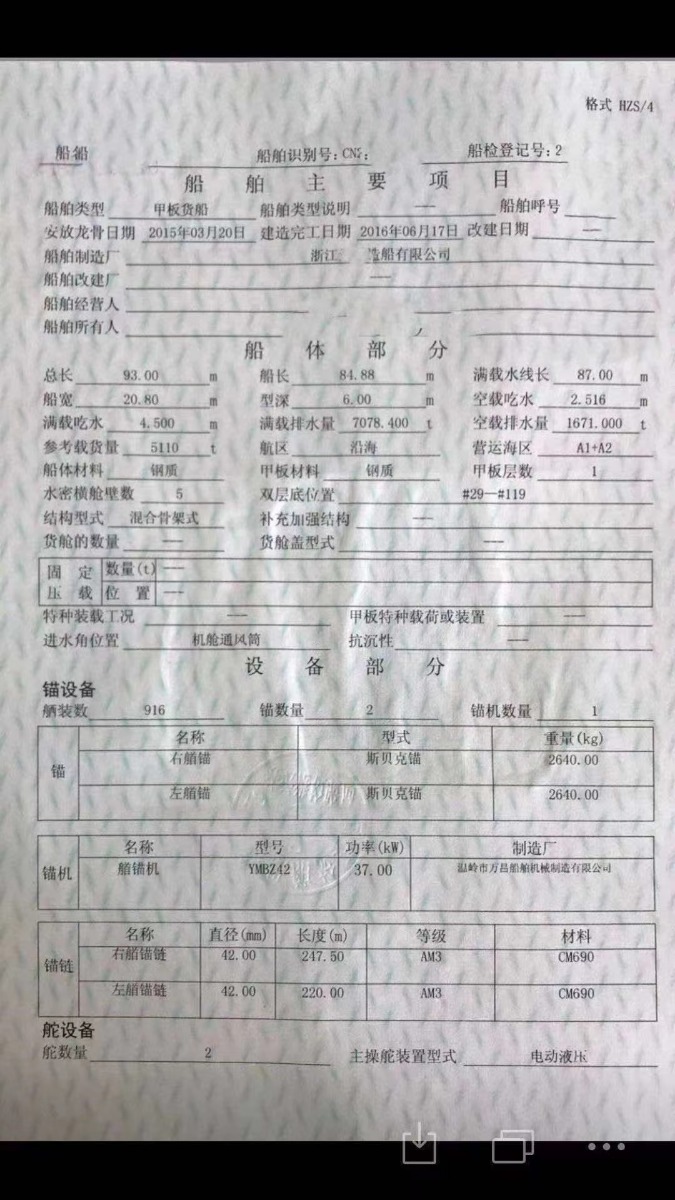 格式 HZS/4
船舶识别号:CN 船检登记号:2
船舶主要项目
船舶类型 甲板货船 船舶类型说明 — 船舶呼号
安放龙骨日期 2015年03月20日 建造完工日期 2016年06月17日 改建日期 —
船舶制造厂 浙江 造船有限公司
船舶改建厂 —
船舶经营人
船舶所有人
船体部分
总长 93.00 m 船长 84.88 m 满载水线长 87.00 m
船宽 20.80 m 型深 6.00 m 空载吃水 2.516 m
满载吃水 4.500 m 满载排水量 7078.400 t 空载排水量 1671.000 t
参考载货量 5110 t 航区 沿海 营运海区 A1+A2
船体材料 钢质 甲板材料 钢质 甲板层数 1
水密横舱壁数 5 双层底位置 #29—#119
结构型式 混合骨架式 补充加强结构 —
货舱的数量 — 货舱盖型式 —
固定 数量(t) —
压载 位置 —
特种装载工况 — 甲板特种载荷或装置 —
进水角位置 机舱通风筒 抗沉性 —
设备部分
锚设备
舾装数 916 锚数量 2 锚机数量 1
名称 型式 重量(kg)
锚
右艏锚 斯贝克锚 2640.00
左艏锚 斯贝克锚 2640.00
名称 型号 功率(kW) 制造厂
锚机 艏锚机 YMBZ42 37.00 温岭市万昌船舶机械制造有限公司
名称 直径(mm) 长度(m) 等级 材料
锚链
右艏锚链 42.00 247.50 AM3 CM690
左艏锚链 42.00 220.00 AM3 CM690
舵设备
舵数量 2 主操舵装置型式 电动液压